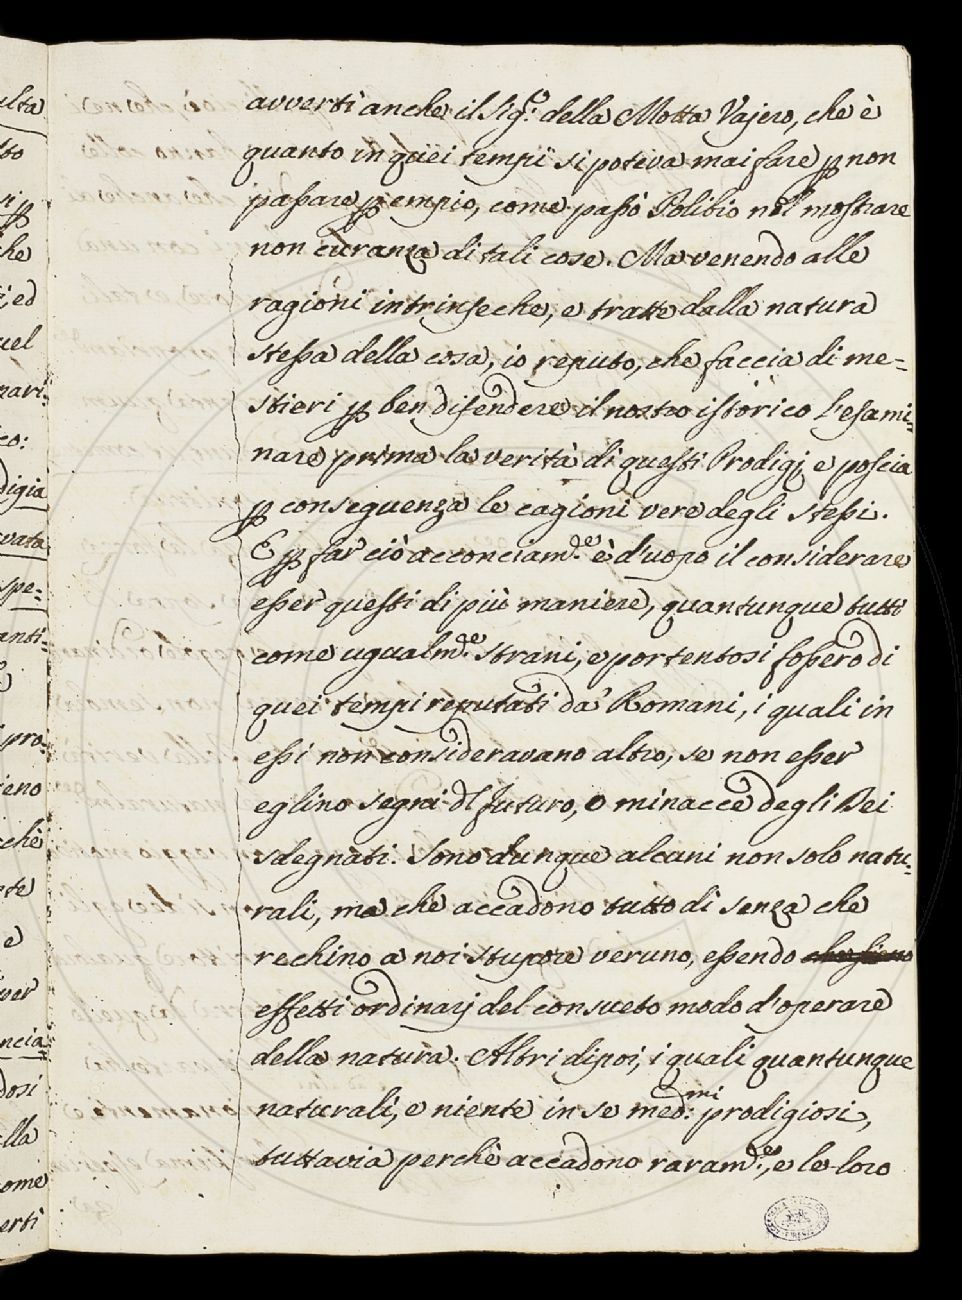 avvertì anche il Sig.e della Motta Vajero, che è
quanto in quei tempi si poteva mai fare ꝑ non
passare ꝑ empio, come passò Polibio nel mostrare
non curanza di tali cose. Ma venendo alle
ragioni intrinseche, e tratte dalla natura
stessa della cosa, io reputo, che faccia di me=
stieri ꝑ ben difendere il nostro istorico l'esami=
nare prima la verità di questi Prodigj, e poscia
ꝑ conseguenza le cagioni vere degli stessi.
E ꝑ far ciò acconciam.te è d'uopo il considerare
esser questi di più maniere, quantunque tutti
come ugualm.te strani, e portentosi fossero di
quei tempi reputati da' Romani, i quali in
essi non consideravano altro, se non esser
eglino segni dl futuro, o minacce degli Dei
sdegnati. Sono dunque alcuni non solo natu=
rali, ma che accadono tutto dì senza che
rechino a noi stupore veruno, essendo
effetti ordinarj del consueto modo d'operare
della natura. Altri dipoi, i quali quantunque
naturali, e niente in se med:mi prodigiosi,
tuttavia perchè accadono raram.te, e le loro
ulta
che
ed
uel
digia
vata
spe=
anti=
pro=
ieno
chè
e
ncia
dosi
lla
ome
erti